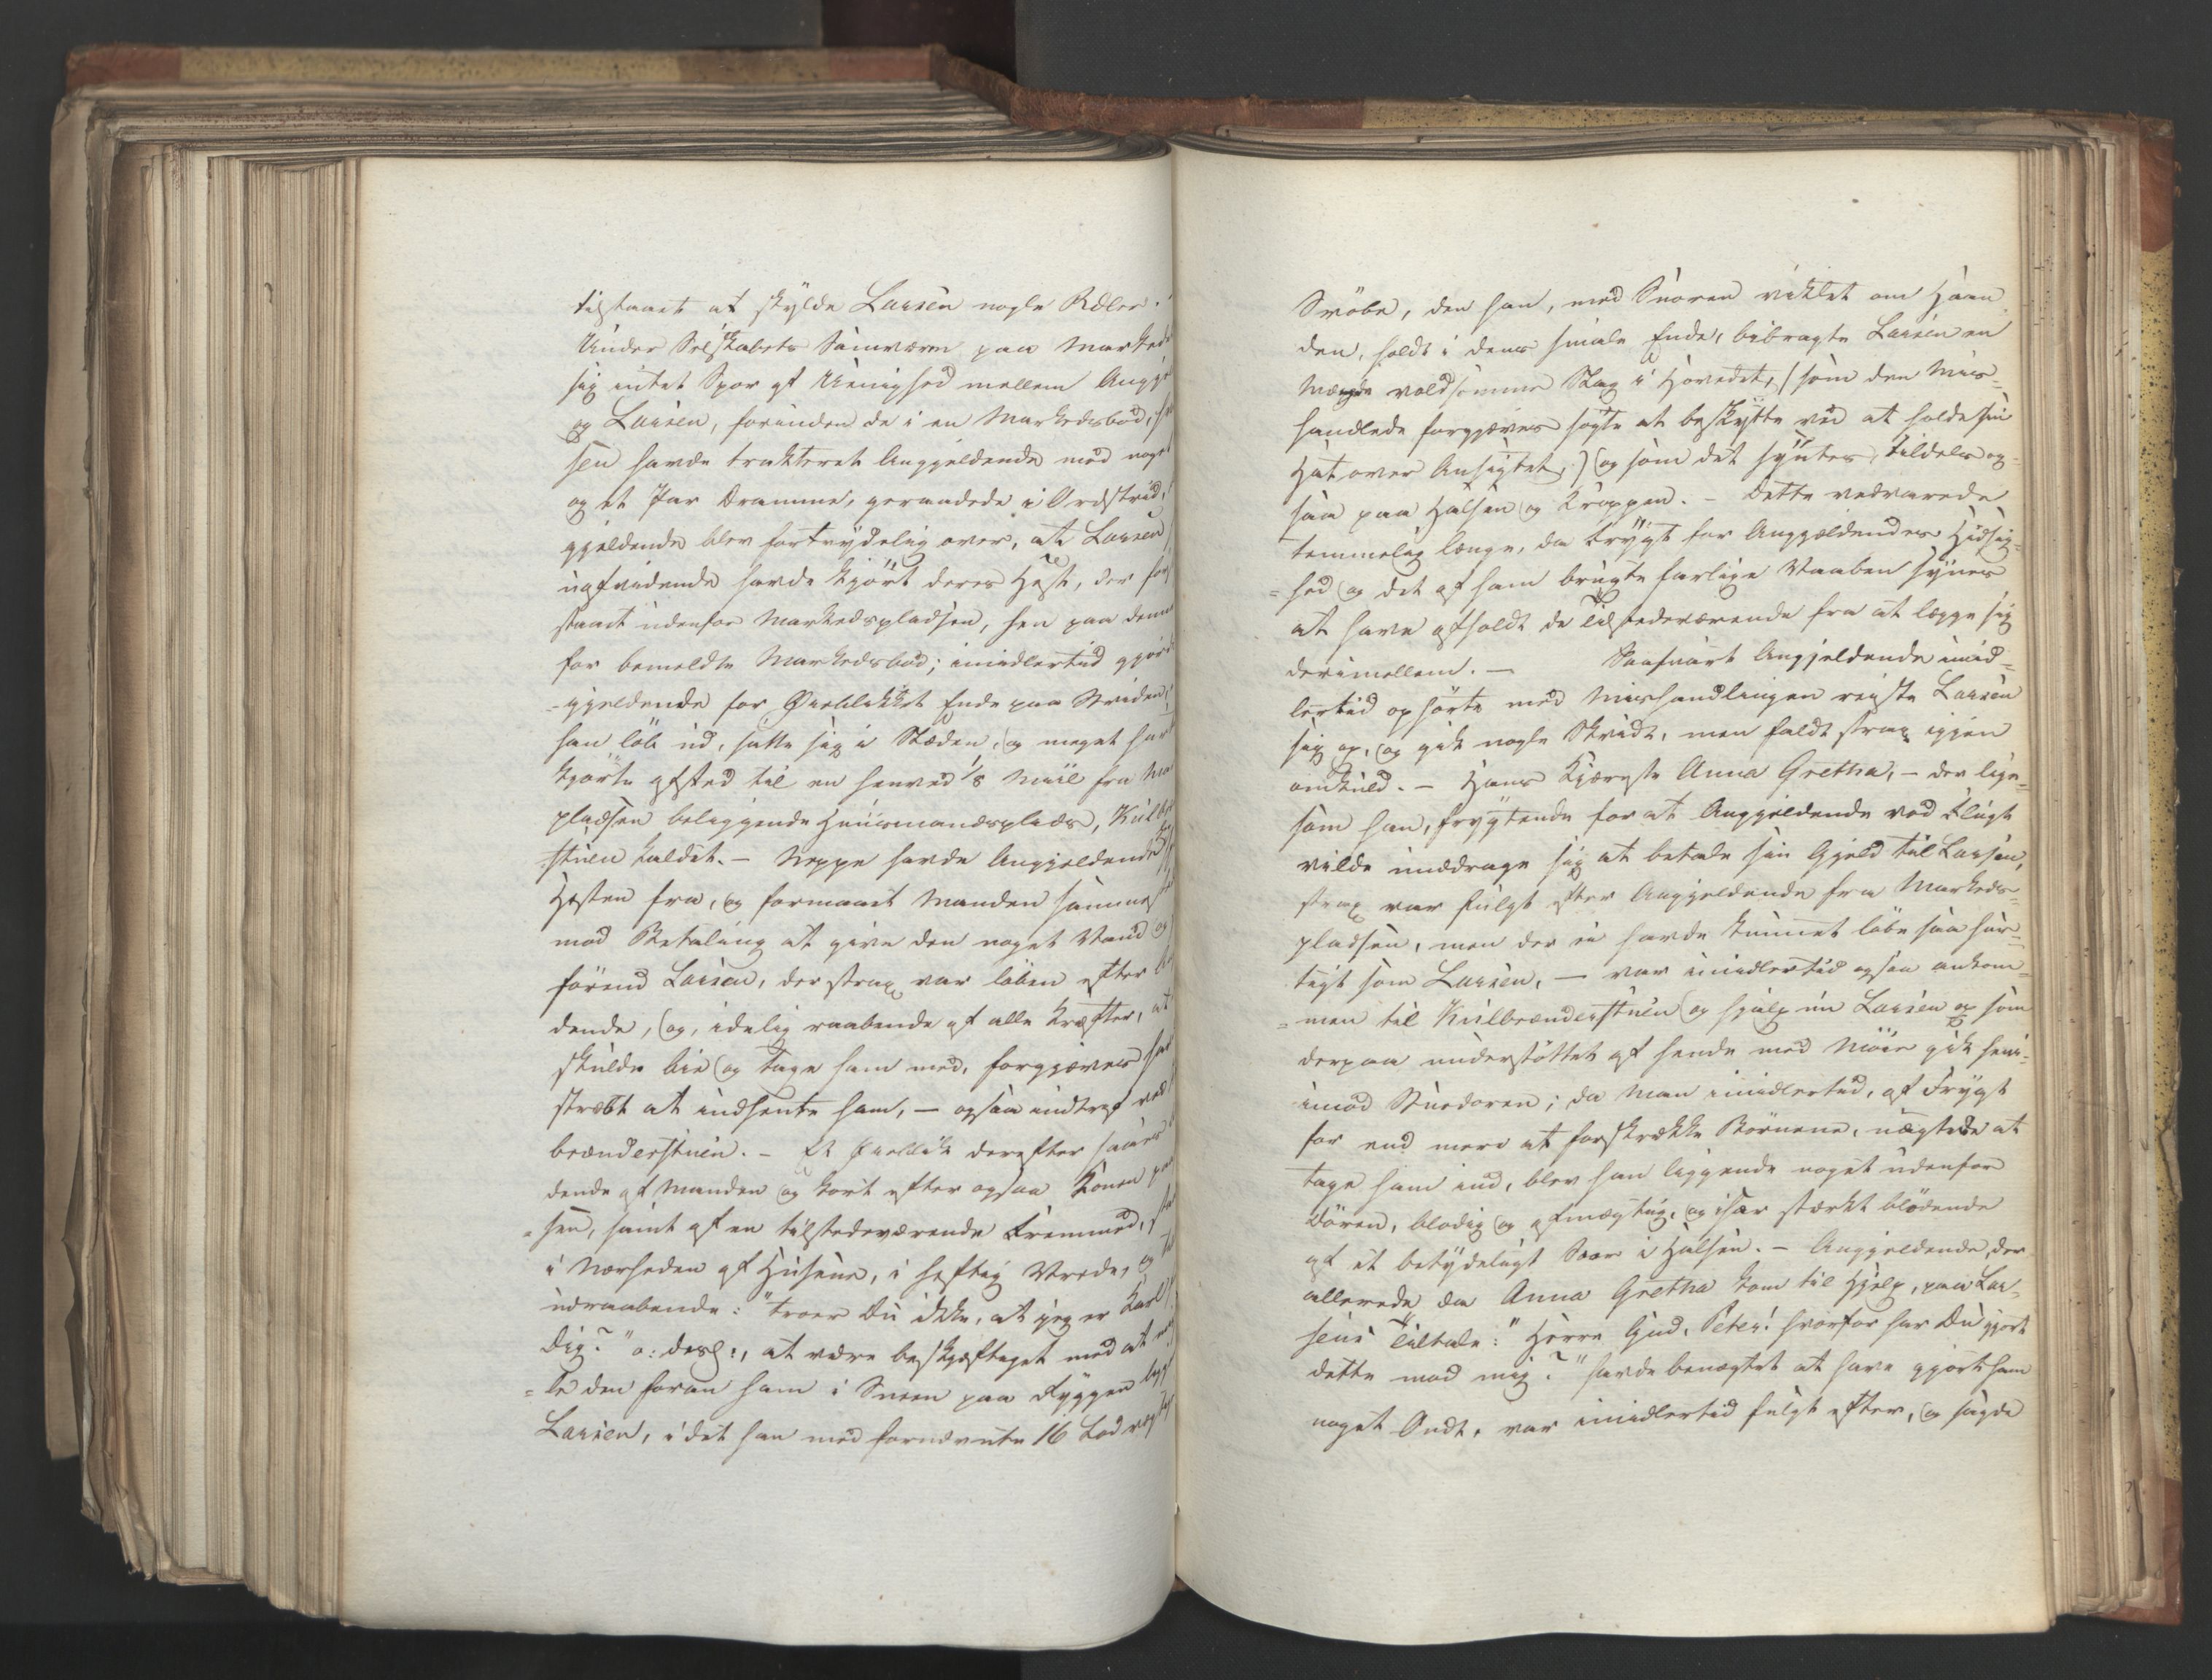 tilstaaet at skylde Larsen nogle Rdler.
Under Selskabets Samværen paa Markeds
sig intet Spor af Uenighed mellem Anggjel
og Larsen, forinden de i en Markedsbod,
sen havde trakteret Anggjeldende med noget
og et Par Dramme, geraadede i Ordstrid,
gjeldende blev fortrydelig over, at Larsen
uafvidende havde kjört deres Hest, der
staaet udenfor Markedspladsen, hen paa denne
for bemeldte Markedsbod; imidlertid gjorde
=gjeldende for Øieblikket Ende paa Striden,
han löb ud, satte sig i Slæden, og meget
kjörte afsted til en henved 1/8 Miil fra Ma
pladsen beliggende Huusmandsplads, Kulbr
stuen kaldet. - Neppe havde Anggjeldende
Hesten fra, og formaaet Manden sammest
mod Betaling at give den noget Vand og
förend Larsen, der strax var löben efter
dende, og, idelig raabende af alle Kræfter, at
skulde bie og tage ham med, forgjæves
stræbt at indhente ham, - ogsaa indtraf ved
brænderstuen. - Et Øieblik derefter saaes
dende af Manden og kort efter ogsaa Konen paa
=sen, samt af en tilstedeværende Fremmed,
i Nærheden af Husene, i heftig Vrede, og
udraabende: "troer Du ikke, at jeg er Karl
Dig?" o: desl:, at være beskjæftiget med at
=le den foran ham i Sneen paa Ryggen
Larsen, idet han med fornævnte 16 Lod
Svöbe, den han, med Snoren viklet om Haan
den, holdt i dens smale Ende, bibragte Larsen en
Mængde voldsomme Slag i Hovedet, (som den Mis=
handlede forgjæves søgte at beskytte ved at holde sin
Hat over Ansigtet,) og som det syntes, tildels og=
saa paa Halsen og Kroppen. - Dette vedvarede
temmelig længe, da Frygt for Anggjældendes Hidsig=
=hed og det af ham brugte farlige Vaaben synes
at have afholdt de Tilstedeværende fra at lægge sig
derimellem. - Saasnart Angjeldende imid=
lertid ophörte med Mishandlingen reiste Larsen
sig op, og gik nogle Skridt, men faldt strax igjen
omkuld. - Hans Kjæreste Anna Gretha, - der lige=
som han, frygtende for at Anggjeldende ved Flugt
vilde unddrage sig at betale sin Gjeld til Larsen,
strax var fulgt efter Anggjeldende fra Markeds=
pladsen, men der ei havde kunnet löbe saa hur=
tigt som Larsen, - var imidlertid ogsaa ankom=
=men til Kulbrænderstuen og hjalp nu Larsen op som
derpaa understöttet af hende med Möie gik hen
imod Stuedøren; da man imidlertid, af Frygt
for end mere at forskrække Börnene, nægtede at
tage ham ind, blev han liggende noget udenfor
Dören, blodig og afmægtig, og især stærkt blödende
af et betydeligt Saar i Halsen. - Anggjeldende, der
allerede da Anna Gretha kom til Hjelp, paa Lar=
sens Tiltale: "Herre Gud, Peter! hvorfor har Du gjort
dette mod mig?" havde benægtet at have gjort ham
noget Ondt, var imidlertid fulgt efter, og sagde